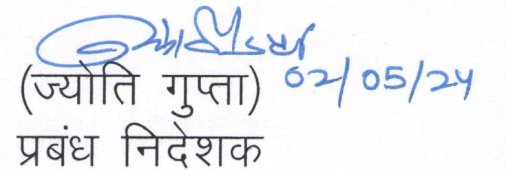 (ज्योति गुप्ता) 02/05/24
प्रबंध निदेशक